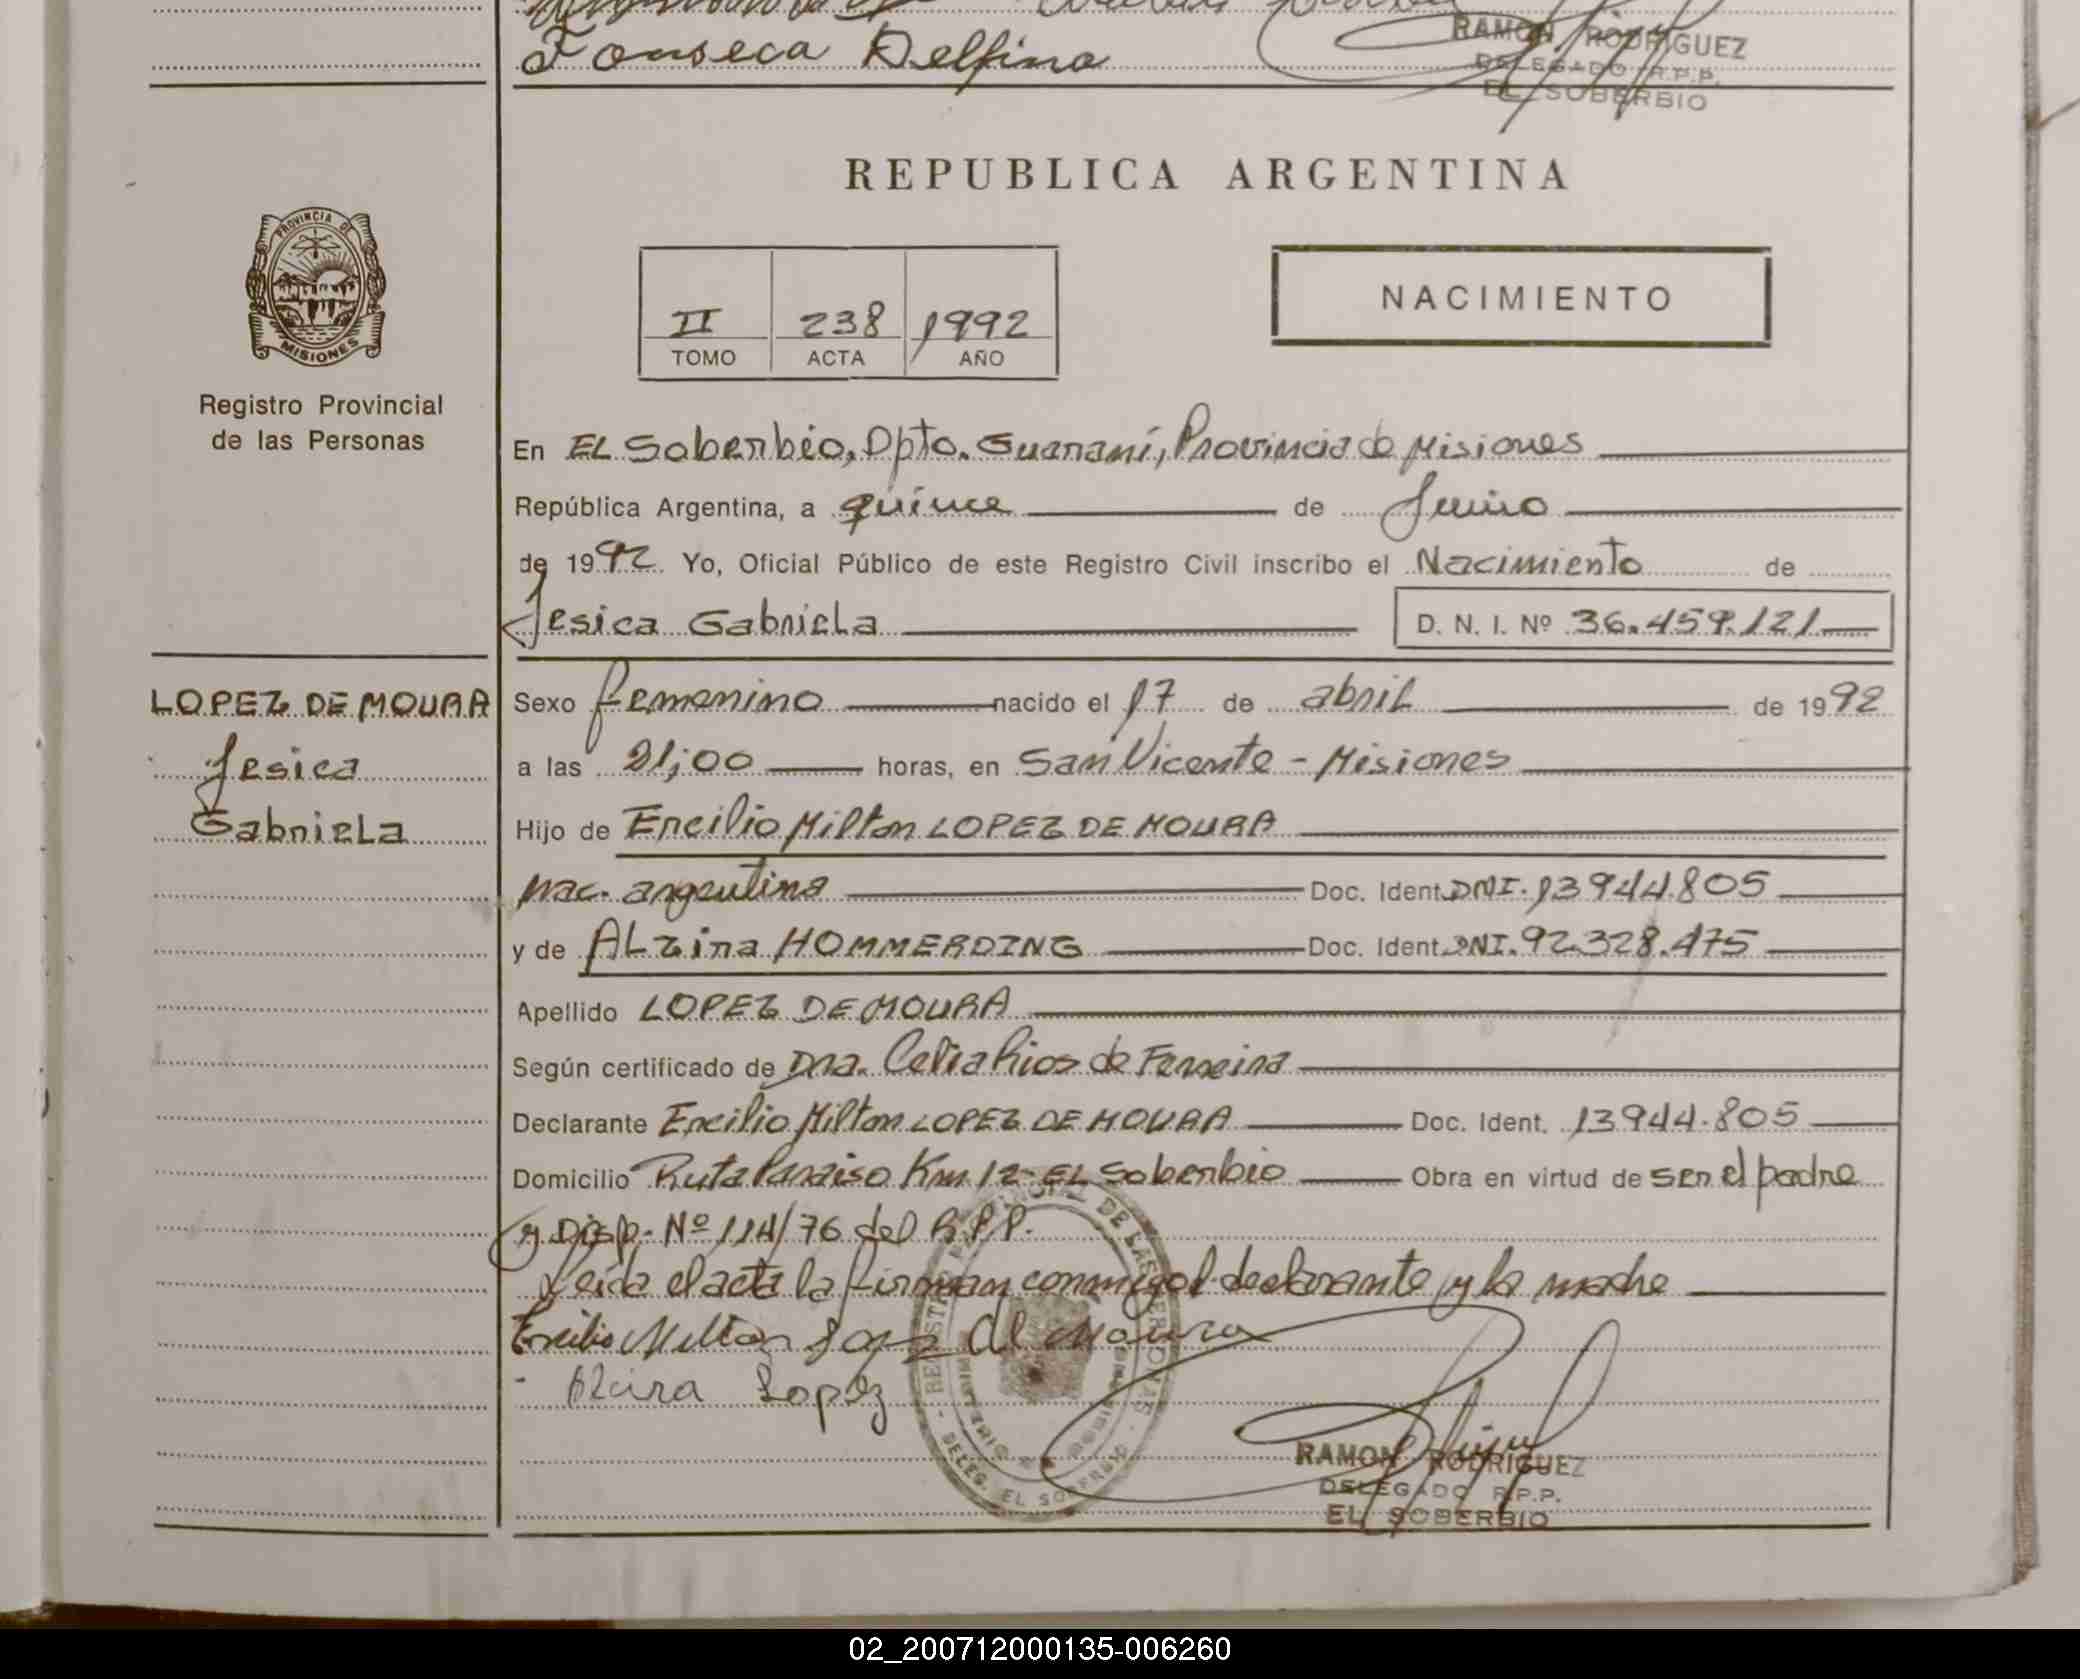 Fonseca Delfino
RAMON RODRIGUEZ
DELEGADO R.P.P.
EL SOBERBIO
REPUBLICA ARGENTINA
PROVINCIA DE
MISIONES
Registro Provincial
de las Personas
II 238 1992
TOMO ACTA AÑO
NACIMIENTO
En EL Soberbio, Dpto. Guaraní, Provincia de Misiones
República Argentina, a quince de Junio
de 1992 Yo, Oficial Público de este Registro Civil inscribo el Nacimiento de
Jesica Gabriela D. N. I. Nº 36.459.121
LOPEZ DE MOURA
Jesica
Gabriela
Sexo femenino nacido el 17 de abril de 1992
a las 21;00 horas, en San Vicente - Misiones
Hijo de Ercilio Milton LOPEZ DE MOURA
nac. argentina Doc. Ident. DNI. 13944.805
y de ALzira HOMMERDING Doc. Ident. DNI. 92.328.475
Apellido LOPEZ DE MOURA
Según certificado de Dra. Celia Rios de Ferreira
Declarante Ercilio Milton LOPEZ DE MOURA Doc. Ident. 13944.805
Domicilio Ruta Paraiso Km 12- EL Soberbio Obra en virtud de ser el padre
y Disp. Nº 114/76 del R.P.P.
Leida el acta la firman conmigo el declarante y la madre
Ercilio Milton Lopez de Moura
Alzira Lopez
REGISTRO PROVINCIAL DE LAS PERSONAS
DELEG. EL SOBERBIO
RAMON RODRIGUEZ
DELEGADO R.P.P.
EL SOBERBIO
02_200712000135-006260